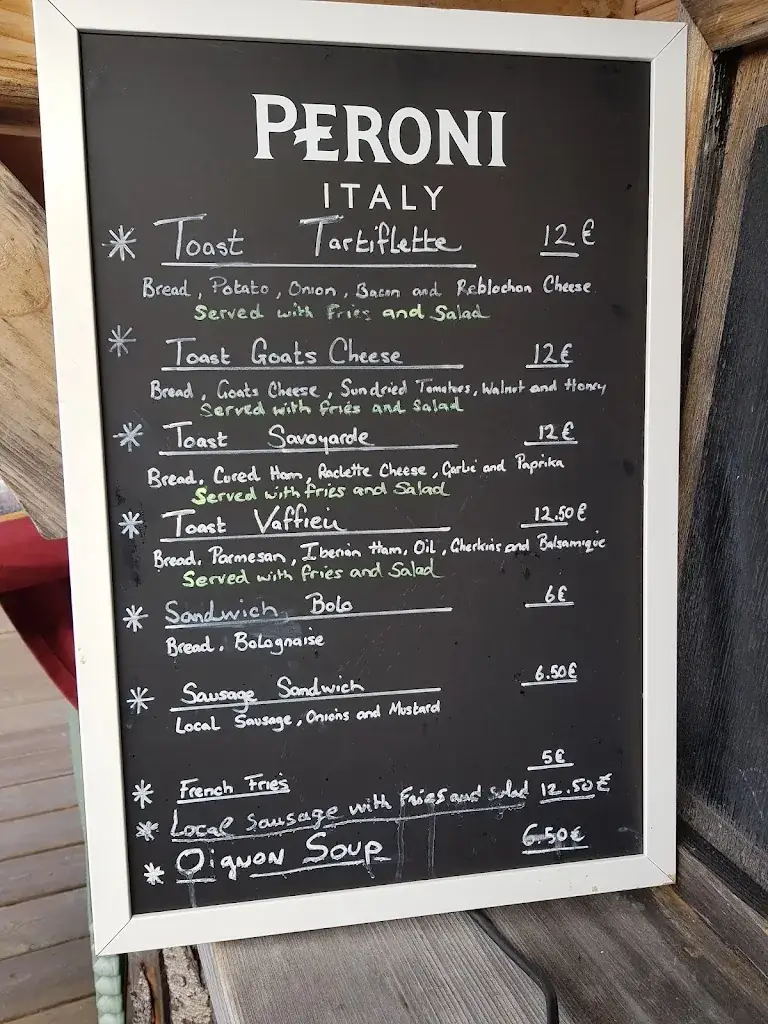 PERONI
ITALY
Toast Tartiflette 12 €
Bread, Potato, Onion, Bacon and Reblochon Cheese
Served with Fries and Salad
Toast Goats Cheese 12€
Bread, Goats Cheese, Sundried Tomatoes, Walnut and Honey
Served with fries and Salad
Toast Savoyarde 12€
Bread, Cured Ham, Raclette Cheese, Garlic and Paprika
Served with fries and Salad
Toast Vaffieu 12.50€
Bread, Parmesan, Iberien Ham, Oil, Gherkins and Balsamique
Served with fries and Salad
Sandwich Bolo 6€
Bread, Bolognaise
Sausage Sandwich 6.50€
Local Sausage, Onions and Mustard
French Fries 5€
Local Sausage with Fries and Salad 12.50€
Oignon Soup 6.50€